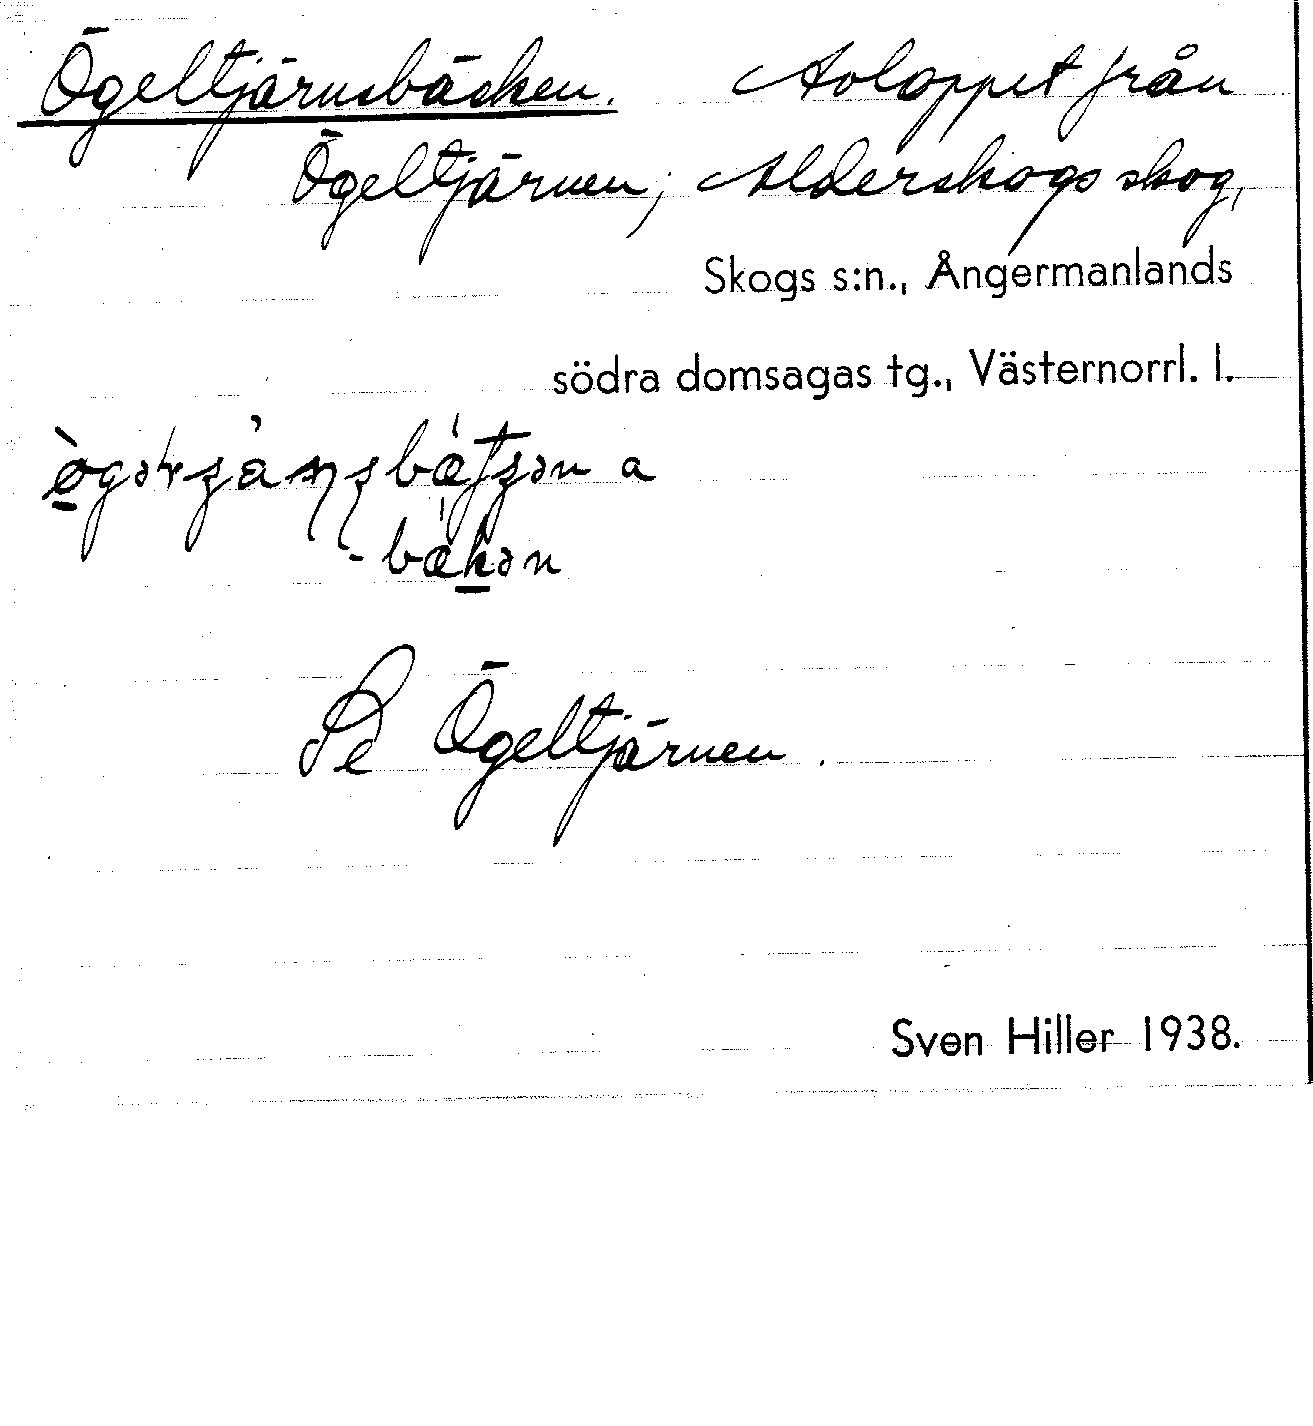 Ögeltjärnsbäcken. Avloppet från
Ögeltjärnen, Alderskogs skog,
Skogs s:n., Ångermanlands
södra domsagas tg., Västernorrl. l.
a
-bäkən
Se Ögeltjärnen.
Sven Hiller 1938.